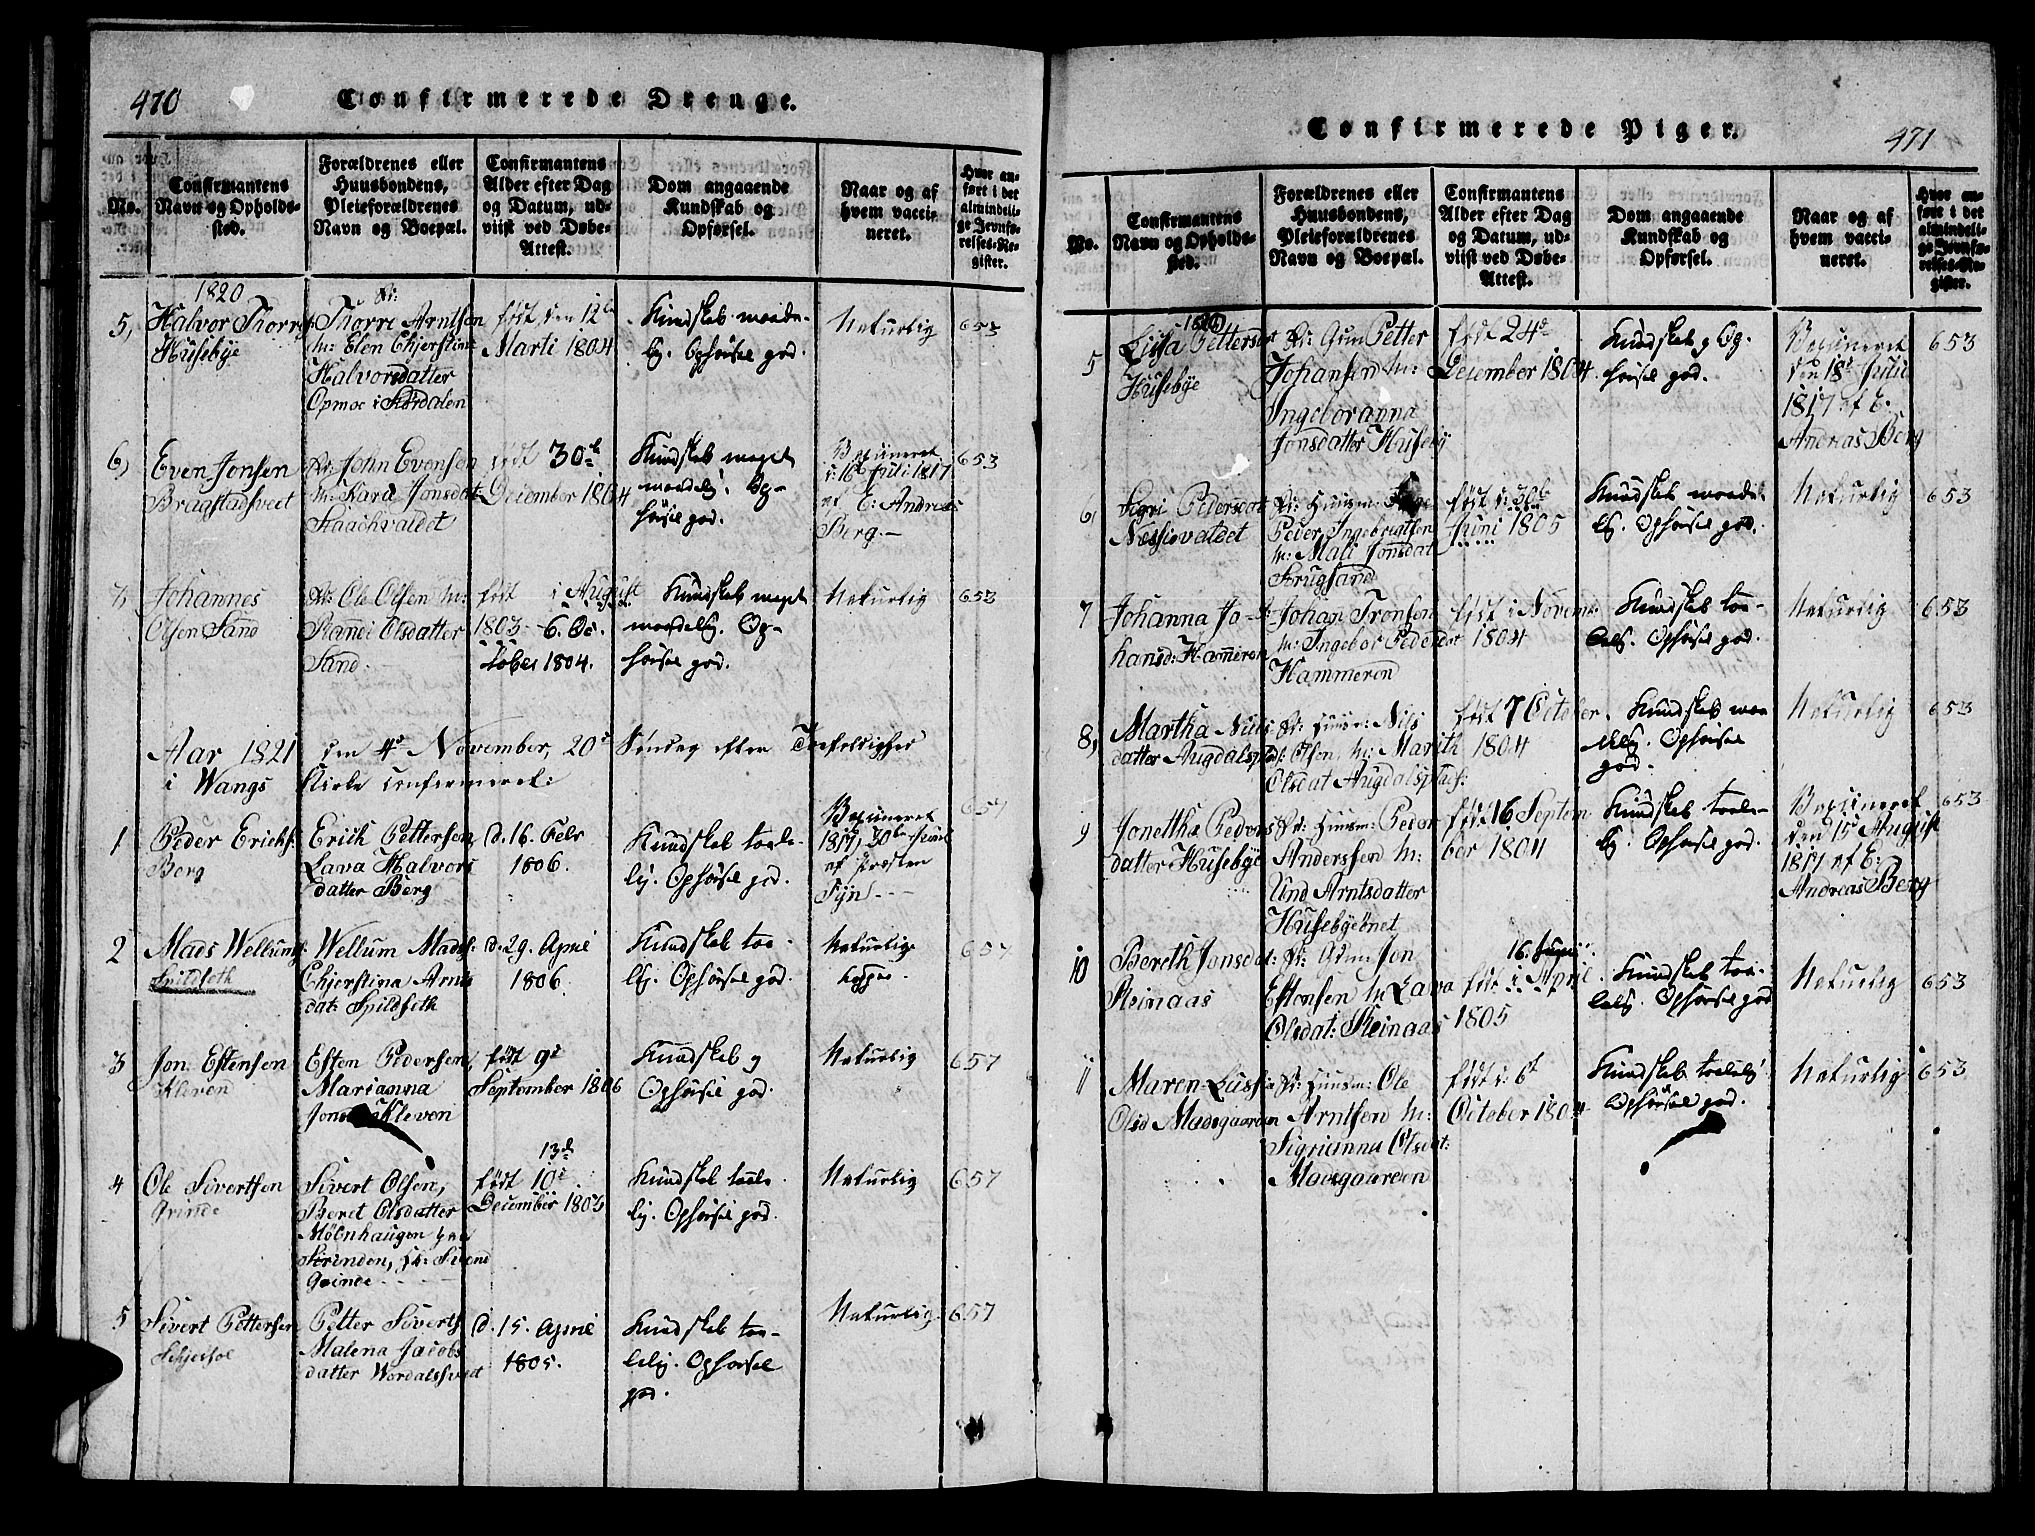 470
Confirmerede Drenge.
No.
Confirmantens
Navn og Opholds-
sted.
Forældrenes eller
Huusbondens,
Pleieforældrenes
Navn og Boepæl.
Confirmantens
Alder efter Dag
og Datum, ud-
viist ved Døbe-
Attest.
Dom angaaende
Kundskab og
Opførsel.
Naar og af
hvem vacci-
neret.
Hvor an-
ført i det
almindeli-
ge Jevnfø-
relses-Re-
gister.
1820
5, Halvor Thorres
Husebye
F: Thorre Arntsen
M: Elen Chjerstine
Halvorsdatter
Opmoe i Stördalen
födt den 12te
Marti 1804
Kundskab maade-
lig. Opförsel god.
Naturlig
653
6, Even Jonsen
Bragstadsveet
F: John Evensen
M: Kara Jonsdat
födt 30te
December 1804
Kundskab meget
maadelig. Op-
försel god.
Vaxineret
d: 16 Juli 1817
af E: Andreas
Berg.
653
7, Johannes
Olsen Sand
F: Ole Olsen M:
Randi Olsdatter
Sand.
födt i August
1803 - 6. Oc
tober 1804.
Kundskab meget
maadelig. Op-
försel god.
Naturlig
653
Aar 1821 den 4de November, 20de Søndag efter Trefoldighed
i Wangs Kirke confirmeret:
1 Peder Erichs:
Berg
Erich Pettersen,
Lava Halvors
datter Berg
d. 16. Febr
1806.
Kundskab taale-
lig. Opförsel god.
Vaxineret
1817, 30te
af Presten
Tyn
657
2 Mads Wellums:
Spildseth
Wellum Mads:
Chjerstina Arnts
dat: Spildseth
d. 29. April
1806.
Kundskab taa-
lig. Opförsel god.
Naturlige
kopper.
657
3 Jon Estensen
Kleven
Esten Pedersen,
Marianna
Kleven
födt 9de
September 1806
Kundskab og
Opförsel god.
Naturlig
657
4 Ole Sivertsen
Grinde
Sivert Olsen,
Beret Olsdatter
Möbnhaugen
Strinden,
Grinde
13de
födt 10de
December 1805
Kundskab taale
lig. Opförsel god.
Naturlig
657
5 Sivert Pettersen
Petter Siverts
Malena Jacobs
datter Wordalssveet
d. 15. April
1805.
Kundskab taa-
lelig. Opförsel
god.
Naturlig.
657
Confirmerede Piger.
471
No.
Confirmantens
Navn og Opholds-
sted.
Forældrenes eller
Huusbondens,
Pleieforældrenes
Navn og Boepæl.
Confirmantens
Alder efter Dag
og Datum, ud-
viist ved Døbe-
Attest.
Dom angaaende
Kundskab og
Opførsel.
Naar og af
hvem vacci-
neret.
Hvor an-
ført i det
almindeli-
ge Jevnfø-
relses-Re-
gister.
5 Petters
Husebye
F: Petter
Johansen M:
Ingeboranna
Jonsdatter Huseby
födt 24de
December 1804
Kundskab og Op-
försel god.
Vaxineret
den 18de Julii
1817 af E:
Andreas Berg
653
6, Sigri Pedersdat
F: Huusm:
Peder Ingebrigtsen
M: Mali Jonsdat
Krugsand
födt d: 30te
Juni 1805
Kundskab maade-
lig. Opförsel god.
Naturlig
653
7 Johanna Jo-
hansd: Hammeren
F: Johan Tronsen
M: Ingebor Pedersdat
Hammeren
födt i Novem:
1804
Kundskab taa-
lelig. Opförsel god.
Naturlig
653
8, Martha Nils
datter Augdalsplad:
F: Huusm: Nils
Olsen, M: Marith
Olsdat Augdalsplads:
födt 7 October
1804
Kundskab maa
delig. Opförsel
god.
Naturlig
653
9 Jonetha Peders
datter Husebye
F: Huusm: Peder
Anderssen M:
Und Arntsdatter
Husebyeönet
födt 16 Septem
ber 1804
Kundskab taale-
lig. Opförsel god.
Vaxineret
den 15 August
1817 af E:
Andreas Berg
653
10 Berith Jonsdat:
Steinaas
F: Gdm: Jon
Estensen M Lava
Olsdat: Steinaas
16. Juni
födt i April
1805
Kundskab taa-
lelig. Opförsel god
Naturlig
653
11 Maren Lussia
Olsd Madsgaarden
F: Huusm: Ole
Arntsen M:
Sigrianna Olsdat:
Madsgaarden
födt d: 6te
October 1804
Kundskab taalelig
Opförsel god.
Naturlig
653